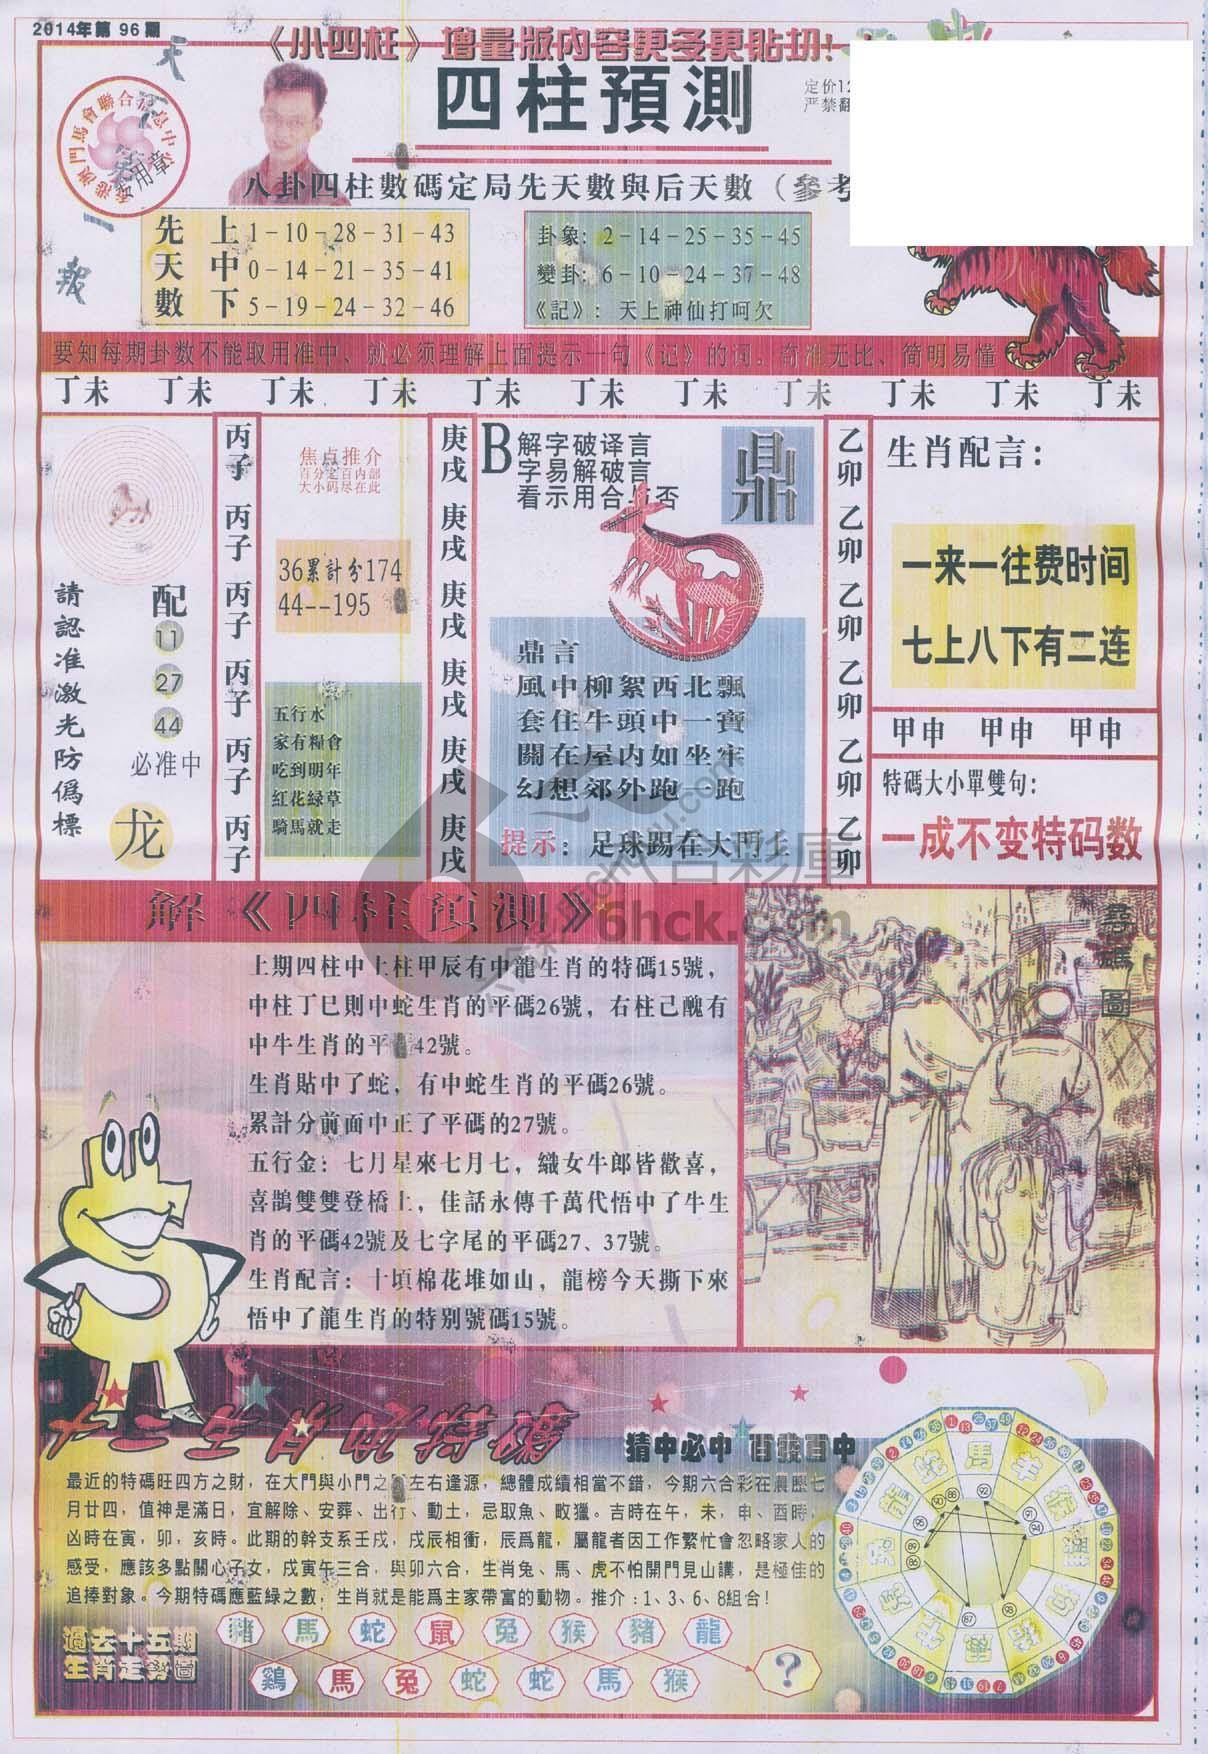 2014年第 96 期
《小四柱》增量版内容更多更貼切!
天
一
報
香港澳門馬會聯合信息中心
专用章
四柱預測
定价12
严禁翻
八卦四柱數碼定局先天數與后天數（參考
先天數
上 1-10-28-31-43
中 0-14-21-35-41
下 5-19-24-32-46
卦象: 2-14-25-35-45
變卦: 6-10-24-37-48
《記》: 天上神仙打呵欠
要知每期卦数不能取用准中、就必须理解上面提示一句《记》的词，奇准无比、简明易懂
丁未 丁未 丁未 丁未 丁未 丁未 丁未 丁未 丁未 丁未 丁未
請認准激光防僞標
配
11
27
44
必准中
龙
丙子 丙子 丙子 丙子 丙子 丙子
焦点推介
百分之百内部
大小码尽在此
36累計分174
44--195
五行水
家有糧會
吃到明年
紅花緑草
騎馬就走
庚戌 庚戌 庚戌 庚戌 庚戌 庚戌
B
解字破译言
字易解破言
看示用合与否
鼎
鼎言
風中柳絮西北飄
套住牛頭中一寶
關在屋内如坐牢
幻想郊外跑一跑
提示: 足球踢在大門上
乙卯 乙卯 乙卯 乙卯 乙卯 乙卯
生肖配言:
一来一往费时间
七上八下有二连
甲申 甲申 甲申
特碼大小單雙句:
一成不变特码数
六合彩庫
6hck.com
解《四柱預測》
上期四柱中上柱甲辰有中龍生肖的特碼15號，
中柱丁巳則中蛇生肖的平碼26號，右柱己醜有
中牛生肖的平 42號。
生肖貼中了蛇，有中蛇生肖的平碼26號。
累計分前面中正了平碼的27號。
五行金: 七月星來七月七，織女牛郎皆歡喜，
喜鵲雙雙登橋上，佳話永傳千萬代悟中了牛生
肖的平碼42號及七字尾的平碼27、37號。
生肖配言: 十頃棉花堆如山，龍榜今天撕下來
悟中了龍生肖的特别號碼15號。
圖
猜中必中 百發百中
最近的特碼旺四方之財，在大門與小門之 左右逢源，總體成績相當不錯，今期六合彩在農歷七
月廿四，值神是滿日，宜解除、安葬、出行、動土，忌取魚、畋獵。吉時在午，未，申、酉時，
凶時在寅，卯，亥時。此期的幹支系壬戌，戊辰相衝，辰爲龍，屬龍者因工作繁忙會忽略家人的
感受，應該多點關心子女，戌寅午三合，與卯六合，生肖兔、馬、虎不怕開門見山講，是極佳的
追捧對象。今期特碼應藍綠之數，生肖就是能爲主家帶富的動物。推介:1、3、6、8組合!
過去十五期
生肖走勢圖
豬 馬 蛇 鼠 兔 猴 豬 龍
鷄 馬 兔 蛇 蛇 馬 猴 ?